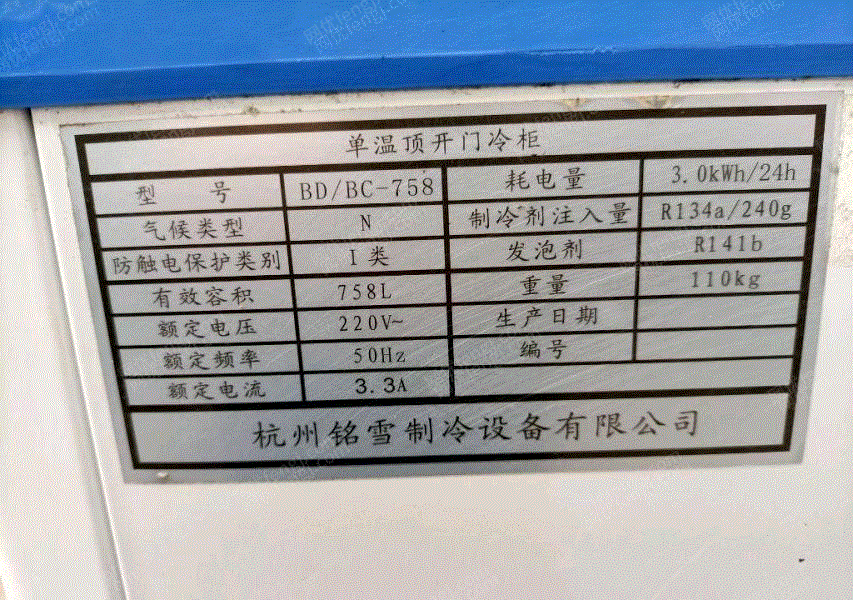 单温顶开门冷柜
型 号 BD/BC-758 耗电量 3.0kWh/24h
气候类型 N 制冷剂注入量 R134a/240g
防触电保护类别 I类 发泡剂 R141b
有效容积 758L 重量 110kg
额定电压 220V~ 生产日期
额定频率 50Hz 编号
额定电流 3.3A
杭州铭雪制冷设备有限公司